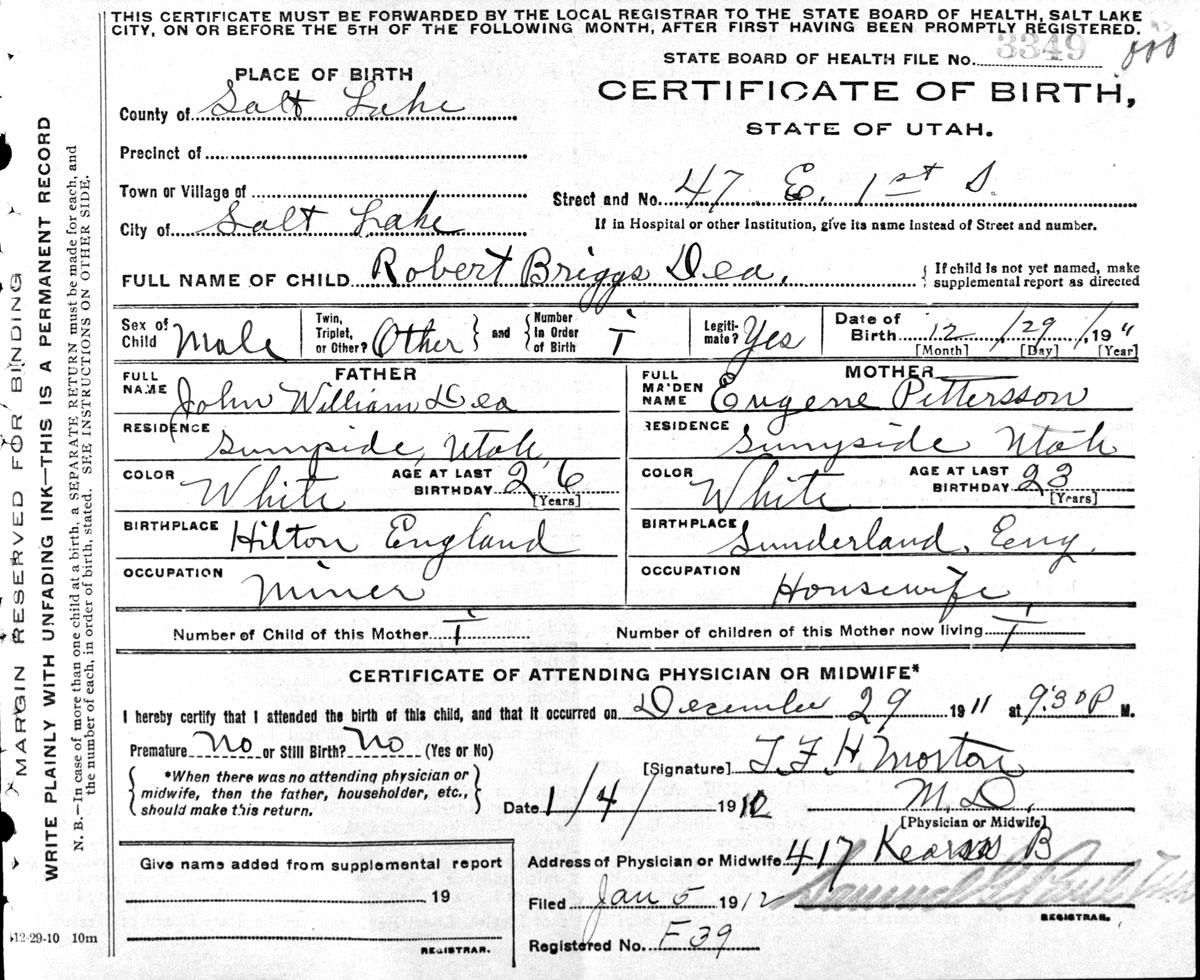 THIS CERTIFICATE MUST BE FORWARDED BY THE LOCAL REGISTRAR TO THE STATE BOARD OF HEALTH, SALT LAKE
CITY, ON OR BEFORE THE 5TH OF THE FOLLOWING MONTH, AFTER FIRST HAVING BEEN PROMPTLY REGISTERED.
STATE BOARD OF HEALTH FILE No. 3349
PLACE OF BIRTH
CERTIFICATE OF BIRTH,
County of Salt Lake
STATE OF UTAH.
Precinct of
Town or Village of
Street and No. 47 E. 1st S.
City of Salt Lake
If in Hospital or other Institution, give its name instead of Street and number.
FULL NAME OF CHILD Robert Briggs Dea.
If child is not yet named, make
supplemental report as directed
Sex of Child Male
Twin, Triplet, or Other? Other and Number in Order of Birth 1
Legiti-mate? Yes
Date of Birth 12/29/1911
[Month] [Day] [Year]
FATHER
FULL NAME John William Dea
RESIDENCE Sunyside, Utah
COLOR White AGE AT LAST BIRTHDAY 26
[Years]
BIRTHPLACE Hilton England
OCCUPATION Miner
MOTHER
FULL MAIDEN NAME Eugene Pittersson
RESIDENCE Sunyside Utah
COLOR White AGE AT LAST BIRTHDAY 23
[Years]
BIRTHPLACE Sunderland, Eng.
OCCUPATION Housewife
Number of Child of this Mother 1 Number of children of this Mother now living 1
CERTIFICATE OF ATTENDING PHYSICIAN OR MIDWIFE*
I hereby certify that I attended the birth of this child, and that it occurred on December 29 1911 at 9:30 P M.
Premature No or Still Birth? No (Yes or No)
*When there was no attending physician or
midwife, then the father, householder, etc.,
should make this return.
[Signature] T. F. H. Morton
M. D.
[Physician or Midwife]
Date 1/4/1912
Give name added from supplemental report
19
REGISTRAR.
Address of Physician or Midwife 417 Kearns B
Filed Jan 5 1912
Samuel G. Paul
REGISTRAR.
Registered No. F 39
12-29-10 10m
MARGIN RESERVED FOR BINDING
WRITE PLAINLY WITH UNFADING INK—THIS IS A PERMANENT RECORD
N. B.—In case of more than one child at a birth, a SEPARATE RETURN must be made for each, and
the number of each, in order of birth, stated. SEE INSTRUCTIONS ON OTHER SIDE.